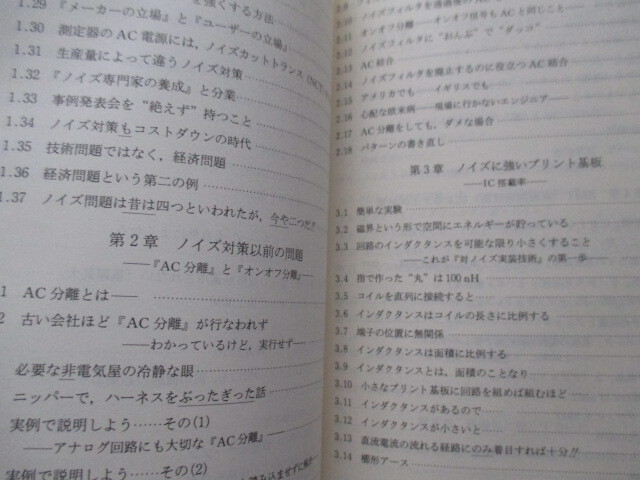 1.29 『メーカーの立場』と『ユーザーの立場』
1.30 測定器のAC電源には,ノイズカットトランス(NCT)
1.31 生産量によって違うノイズ対策
1.32 『ノイズ専門家の養成』と分業
1.33 事例発表会を“絶えず”持つこと
1.34 ノイズ対策もコストダウンの時代
1.35 技術問題ではなく,経済問題
1.36 経済問題という第二の例
1.37 ノイズ問題は昔は四つといわれたが,今や二つだ!!
第2章 ノイズ対策以前の問題
──『AC分離』と『オンオフ分離』──
1 AC分離とは──
2 古い会社ほど『AC分離』が行なわれず
──わかっているけど,実行せず──
必要な非電気屋の冷静な眼
ニッパーで,ハーネスをぶったぎった話
実例で説明しよう……その(1)
──アナログ回路にも大切な『AC分離』──
実例で説明しよう……その(2)
オンオフ分離──オンオフ信号もACと同じこと──
2.12 ノイズフィルタに“おんぶ”で“ダッコ”
2.13 AC結合
2.14 ノイズフィルタを廃止するのに役立つAC結合
2.15 アメリカでも──イギリスでも
2.16 心配な欧米病──現場に行かないエンジニア──
2.17 AC分離をしても,ダメな場合
2.18 パターンの書き直し
第3章 ノイズに強いプリント基板
──IC搭載率──
3.1 簡単な実験
3.2 磁界という形で空間にエネルギーが貯っている
3.3 回路のインダクタンスを可能な限り小さくすること
──これが『対ノイズ実装技術』の第一歩──
3.4 指で作った“丸”は100 nH
3.5 コイルを直列に接続すると
3.6 インダクタンスはコイルの長さに比例する
3.7 端子の位置に無関係
3.8 インダクタンスは面積に比例する
3.9 インダクタンスとは,面積のことなり
3.10 小さなプリント基板に回路を組めば組むほど
3.11 インダクタンスがあるので
3.12 インダクタンスが小さいと
3.13 直流電流の流れる経路にのみ着目すれば十分!!
3.14 櫛形アース